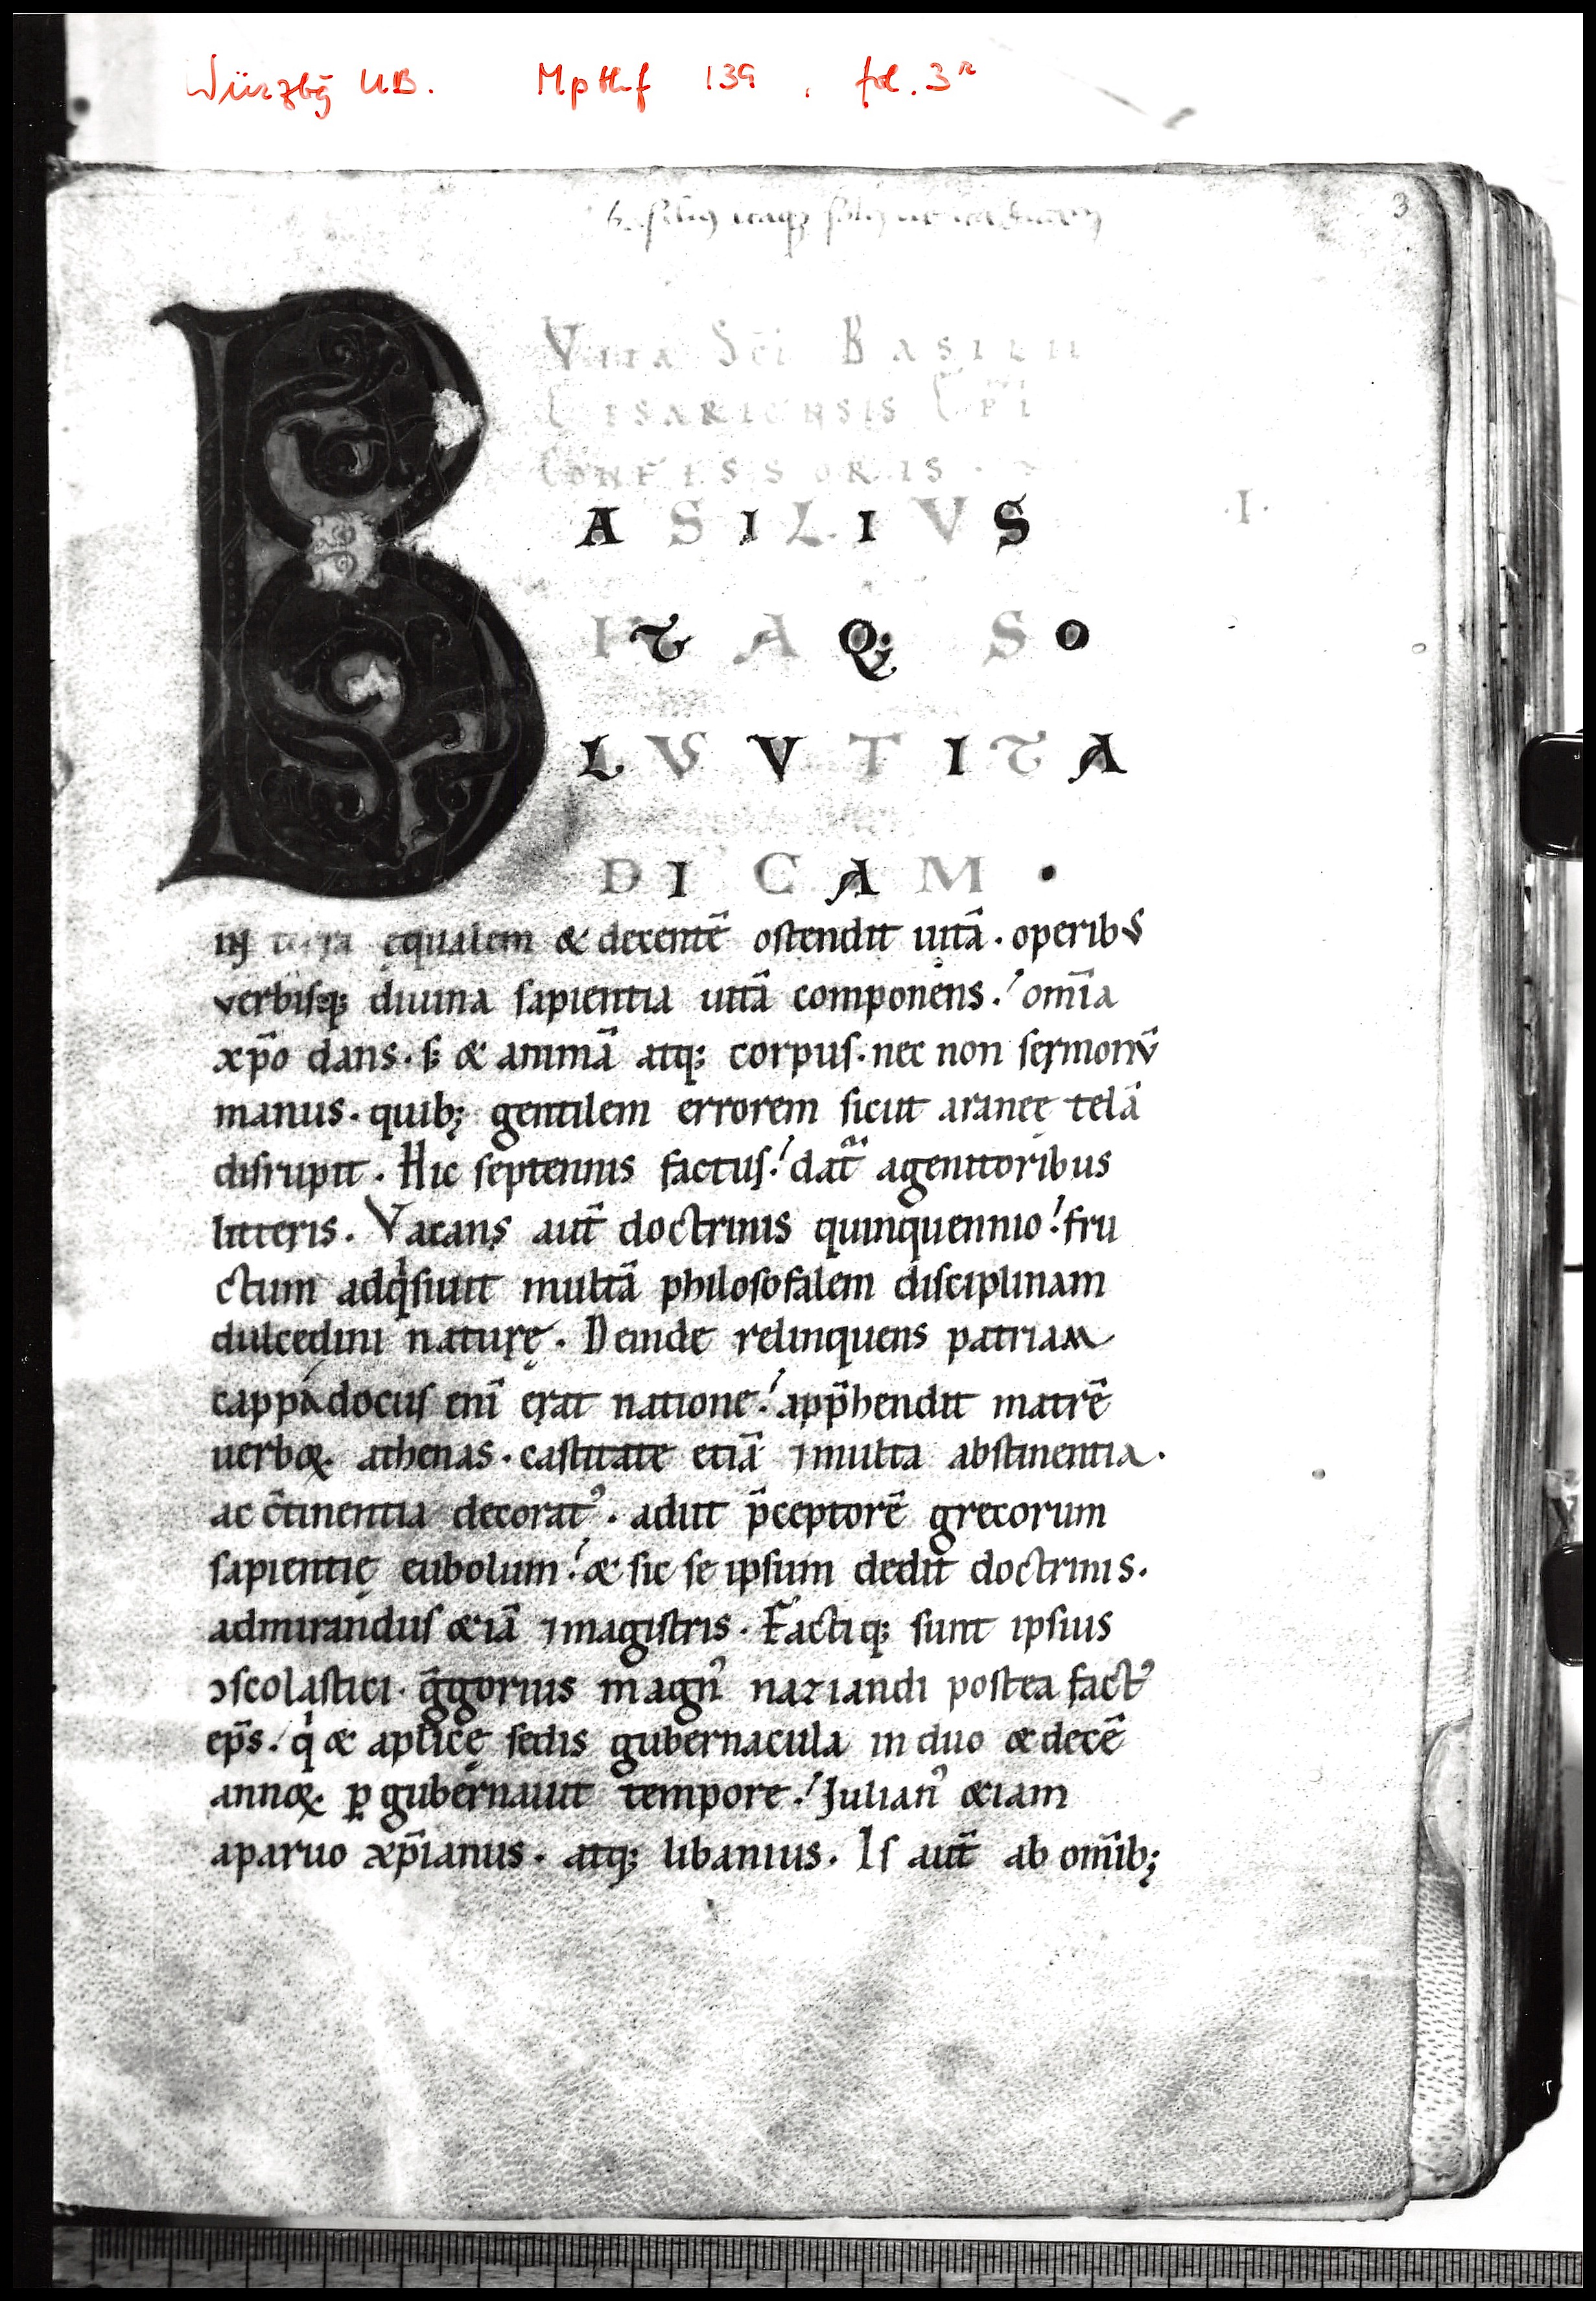 Würzbg UB. Mpthf 139, fol. 3r
3
basiliꝰ itaqꝫ solꝰ ut ita dicam
VITA SCĪ BASILII
CESARIENSIS EPĪ
CONFESSORIS.
BASILIVS
.I.
ITAQ; SO
LVS VT ITA
DICAM .
in terra ęqualem & decentē ostendit uitā. operibus
verbisq; diuina sapientia uitā componens. omīa
xp̄o dans. s; & animā atq; corpus. nec non sermonū
manus. quib; gentilem errorem sicut aranee̜ telā
disrupit. Hic septennis factus. dat̄ agenitoribus
litteris. Vacans aut̄ doctrinis quinquennio. fru
ctum adqͥsiuit multā philosofalem disciplinam
dulcedini nature̜. Deinde relinquens patriam
cappadocus enī erat natione. app̄hendit matrē
uerboꝝ. athenas. castitate etiā ⁊multa abstinentia.
ac c̄tinentia decoratꝰ. adiit p̄ceptorē grecorum
sapientie̜ eubolum. & sic se ipsum dedit doctrinis.
admirandus &iā ⁊magistris. Factiq; sunt ipsius
ↄscolastici. ḡgorius magnꝰ naziandi postea factꝰ
ep̄s. qͥ & aplice̜ sedis gubernacula in duo & decē
annoꝝ. ꝑ gubernauit tempore. Julianꝰ &iam
aparuo xp̄ianus. atq; libanius. Is aut̄ ab omīb;